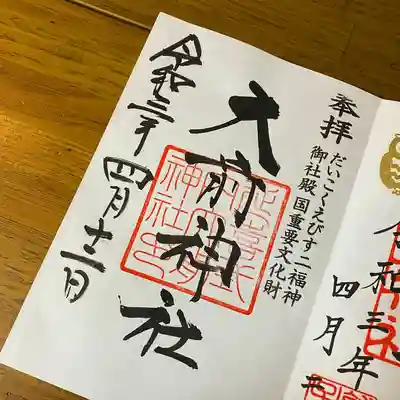 奉拝
だいこくえびす二福神
御社殿国重要文化財
大前神社
令和三年四月十三日
令和三年
四月